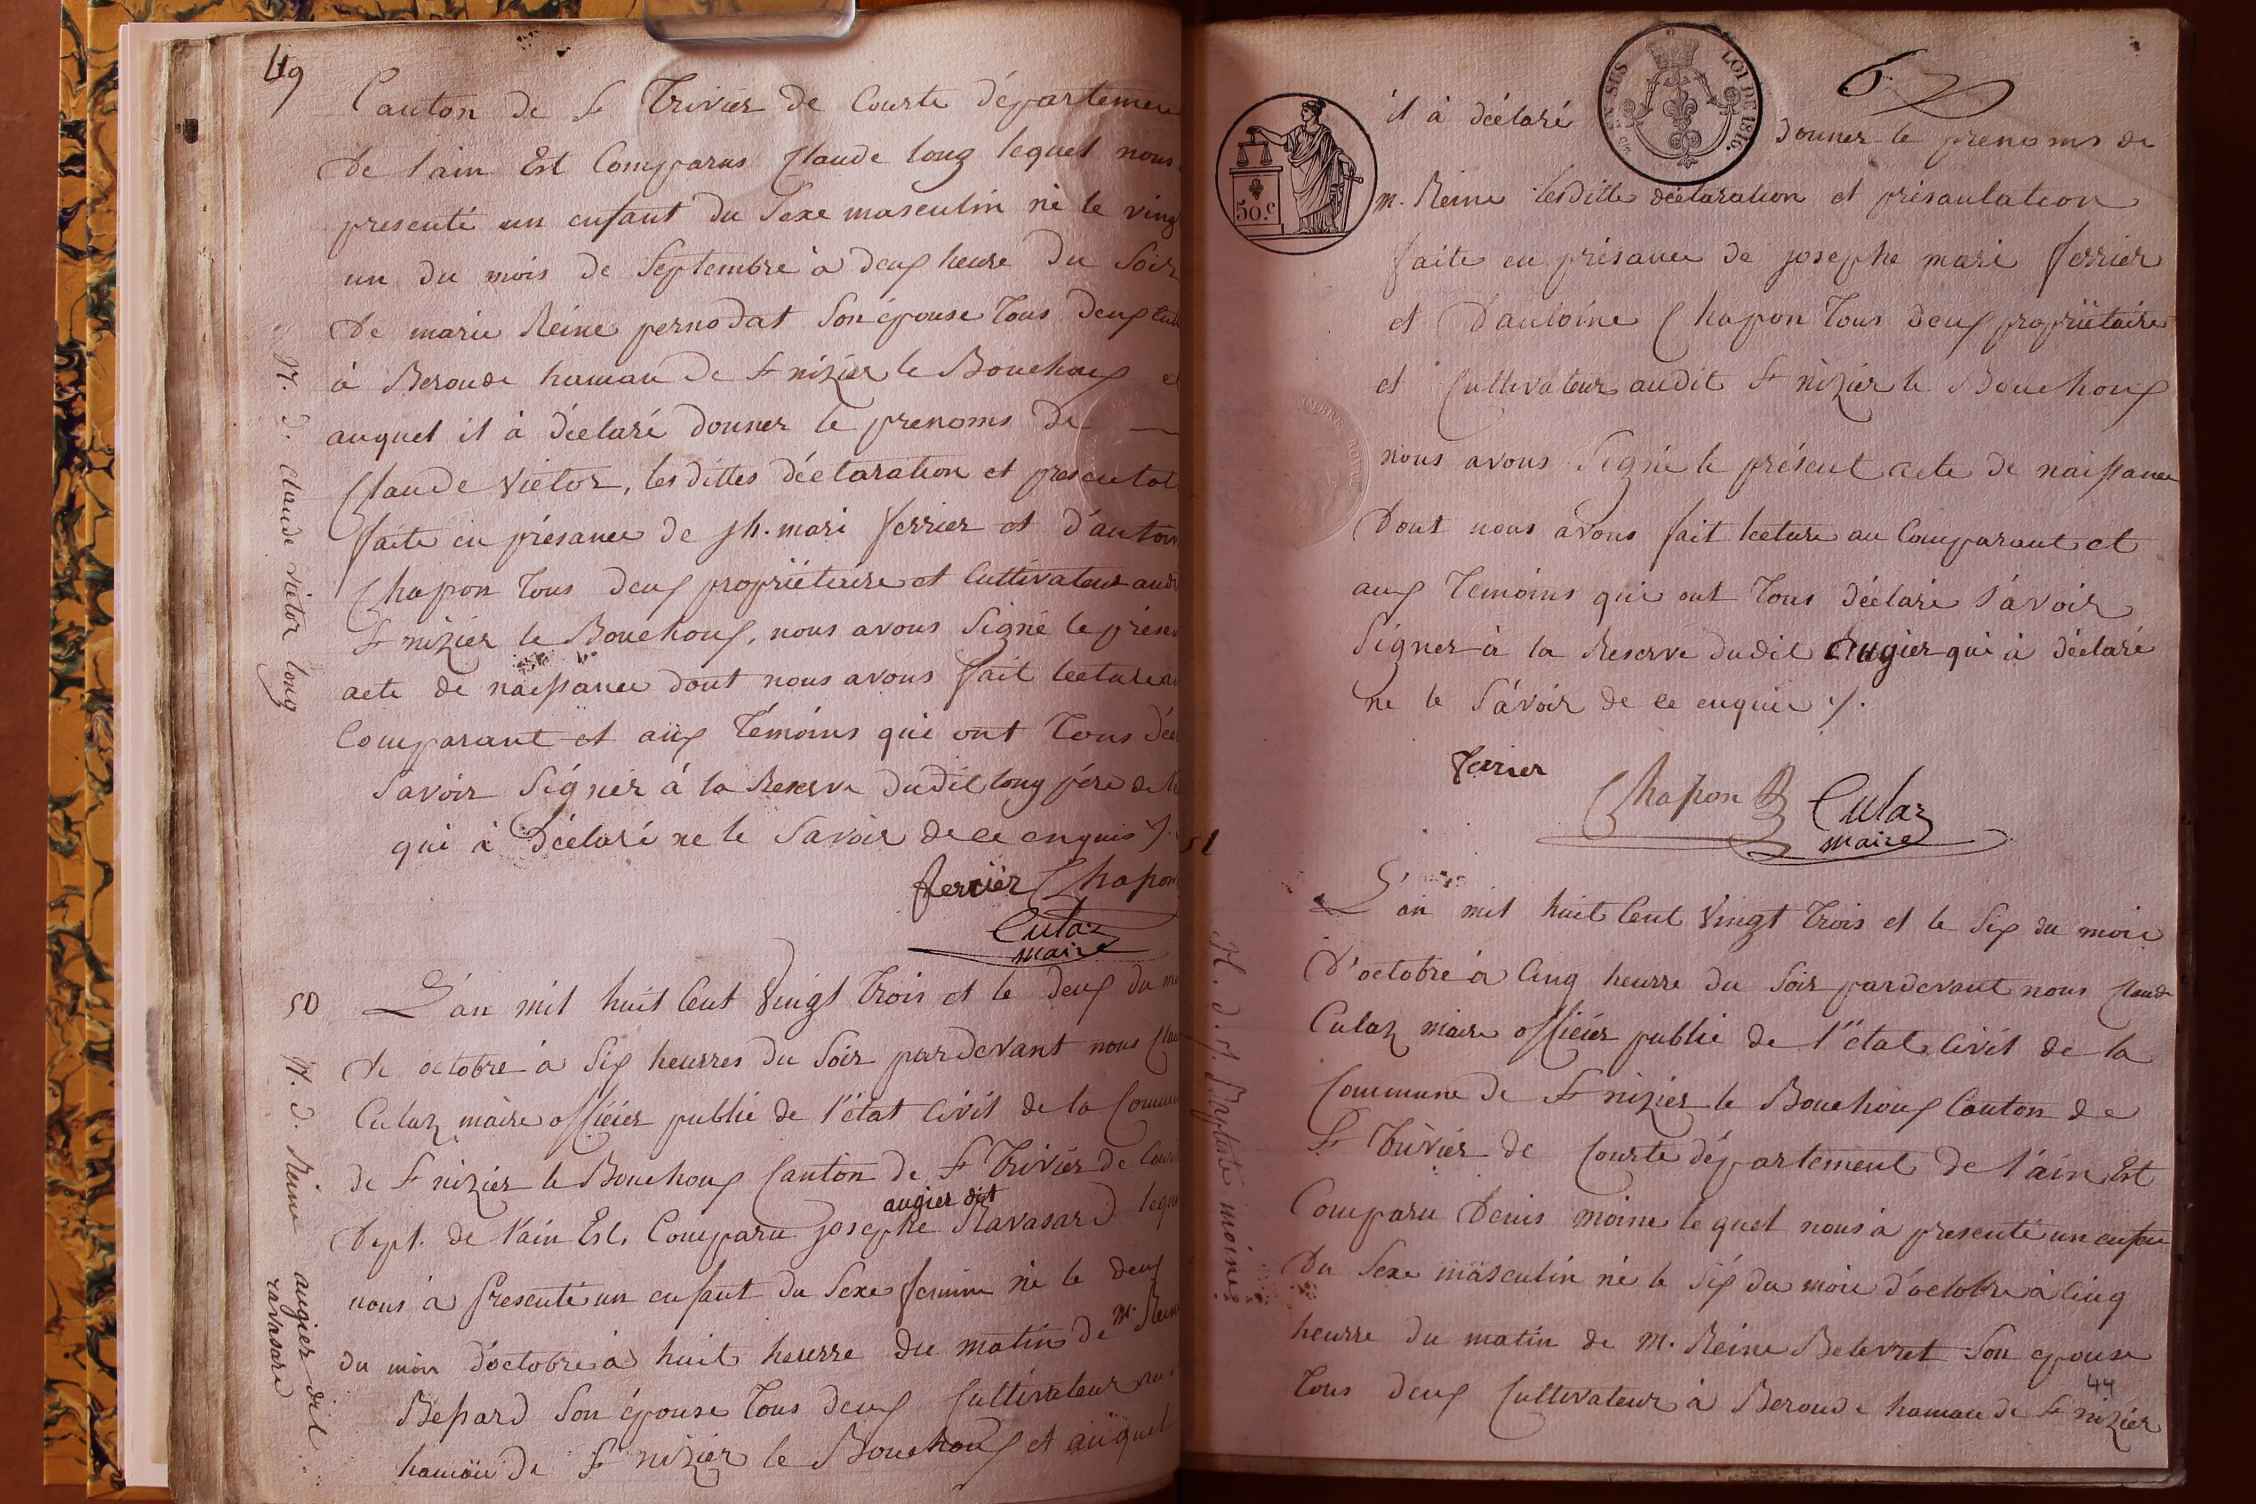 49
Canton de St Trivier de Courte département
De l'ain Est Comparus Claude long lequel nous
presenté un enfant du Sexe masculin né le ving
un du mois de Septembre à deux heure du Soir
De marie Reine pernodat Son épouse Tous deux
à Beroude hamau de St nizier le Bouchoux et
auquel il à déclaré donner le prenoms de
Claude victor, lesdittes déclaration et presentat
faite en présance de jh. mari ferrier et d'antoin
Chapon Tous deux propriétaire et Cultivateur audi
St nizier le Bouchoux, nous avons Signé le présen
acte de naissance dont nous avons fait lecture au
Comparant et aux Témoins qui ont Tous déc
Savoir Signer à la Reserve dudit long père de
qui à Déclaré ne le Savoir de ce enquis ./.
N. d. claude victor long
ferrier Chapon
Culaz
maire
50
L'an mil huit Cent Vingt Trois et le deux du m
de octobre à Six heurres du Soir pardevant nous Clau
Culaz maire officier public de l'état Civil de la Commu
de St nizier le Bouchoux Canton de St Trivier de Cour
augier dit
Dept. de l'ain Est Comparu josephe Ravasard lequ
nous à presenté un enfant du Sexe feminin né le deux
du mois d'octobre à huit heurre du matin de m. Rein
Bessard Son épouse Tous deux Cultivateur au
hamau de St nizier le Bouchoux et auquel
N. d. Reine augier dit
ravasare
il à déclaré donner le prenoms de
EN SUS
LOI DE 1816.
50.c
m. Reine lesditte déclaration et présantation
faite en présance de josephe mari ferrier
et D'antoine Chapon Tous deux propriétaire
et Cultivateur audit St nizier le Bouchoux
nous avons Signé le présent acte de naissance
Dont nous avons fait lecture au Comparant et
aux Témoins qui ont Tous déclaré Savoir
Signer à la Reserve dudit augier qui à déclaré
ne le Savoir de ce enquie ./.
ferrier
Chapon
Culaz
maire
51
L'an mil huit Cent Vingt Trois et le Six du mois
D'octobre à Cinq heurre du Soir pardevant nous Claude
Culaz maire officier public de l'état Civil de la
Commune de St nizier le Bouchoux Canton de
St Trivier de Courte département de l'ain Est
Comparu Denis moine lequel nous à presenté un enfan
Du Sexe masculin né le Six du mois d'octobre à Cinq
heurre du matin de m. Reine Belevret Son epouse
Tous deux Cultivateur à Beroude hamau de St nizier
N. d. j. Baptiste moine
44